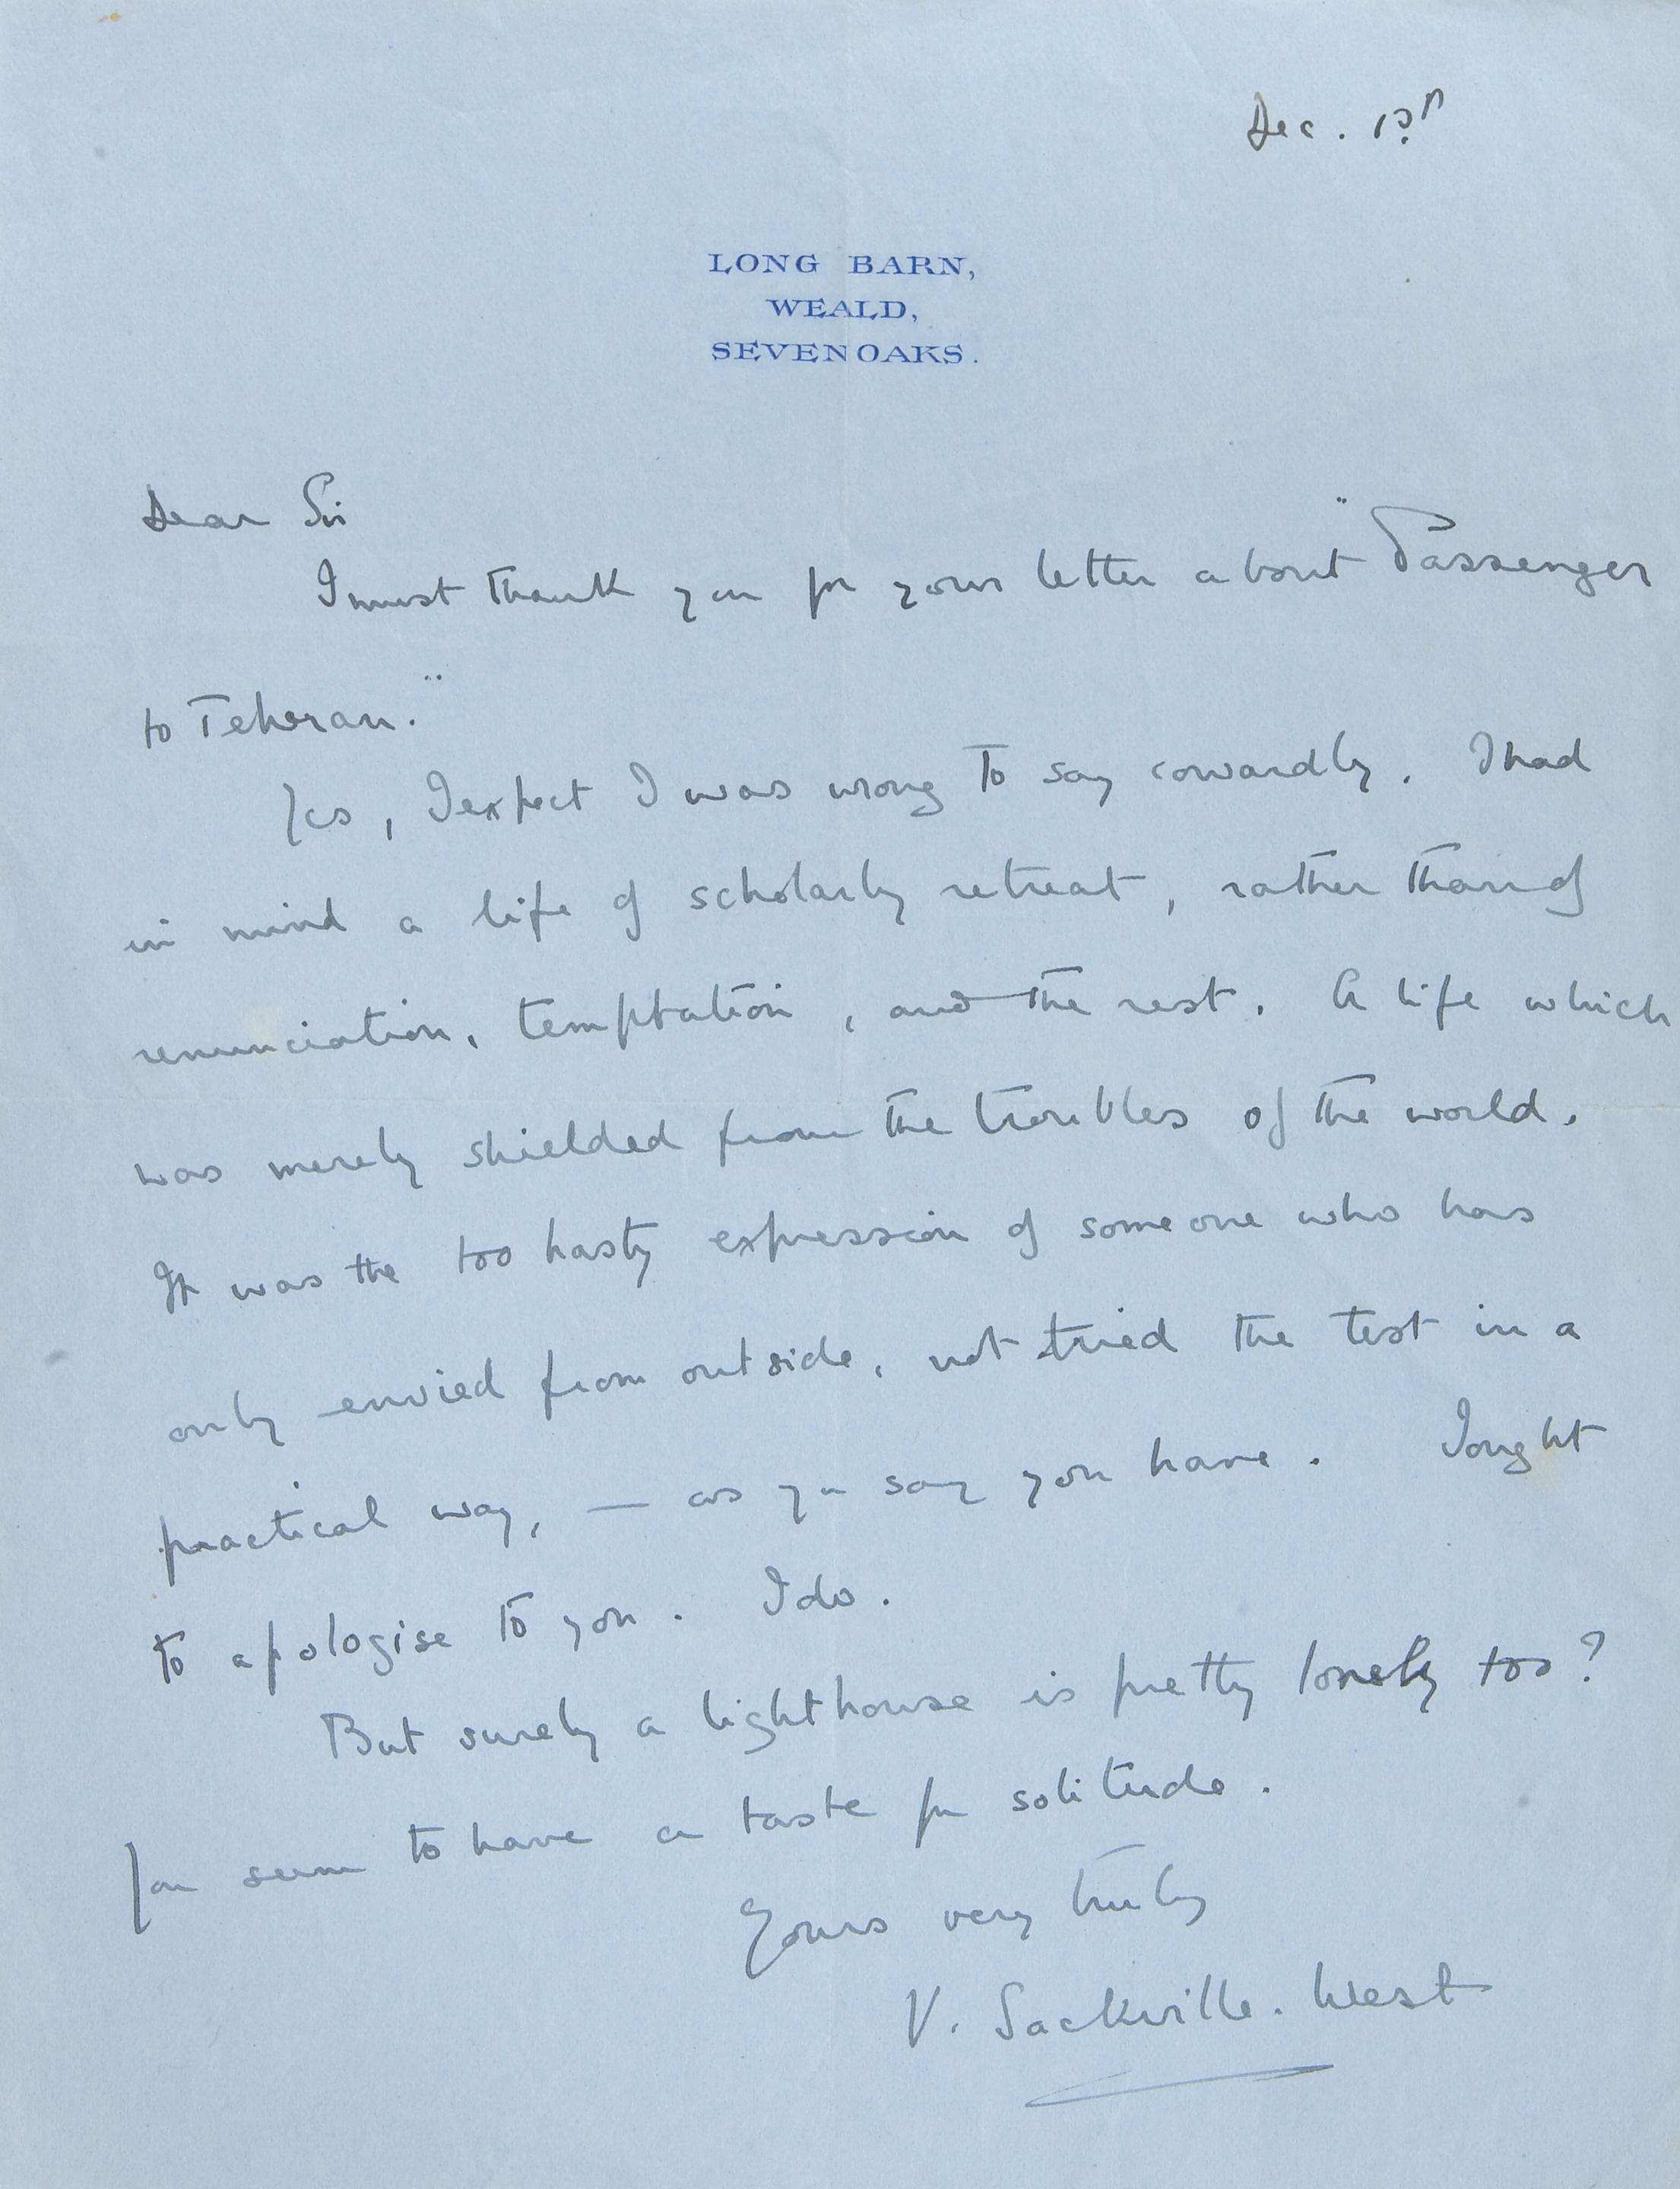 Dec. 13th
LONG BARN,
WEALD,
SEVENOAKS.
Dear Sir
I must thank you for your letter about "Passenger
to Teheran."
Yes, I expect I was wrong to say cowardly. I had
in mind a life of scholarly retreat, rather than of
renunciation, temptation, and the rest. A life which
was merely shielded from the troubles of the world.
It was the too hasty expression of someone who has
only envied from outside, not tried the test in a
practical way, — as you say you have. I ought
to apologise to you. I do.
But surely a lighthouse is pretty lonely too?
You seem to have a taste for solitude.
Yours very truly
V. Sackville-West